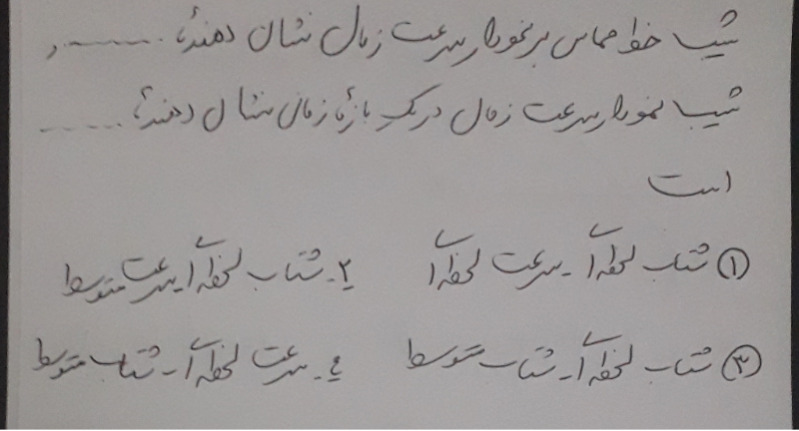 شیب خط مماس بر نمودار سرعت زمان نشان دهندهٔ ........ و
شیب نمودار سرعت زمان در یک بازهٔ زمانی نشان دهندهٔ ........
است
① شتاب لحظه‌ای - سرعت لحظه‌ای ۲- شتاب لحظه‌ای - سرعت متوسط
③ شتاب لحظه‌ای - شتاب متوسط ۴- سرعت لحظه‌ای - شتاب متوسط